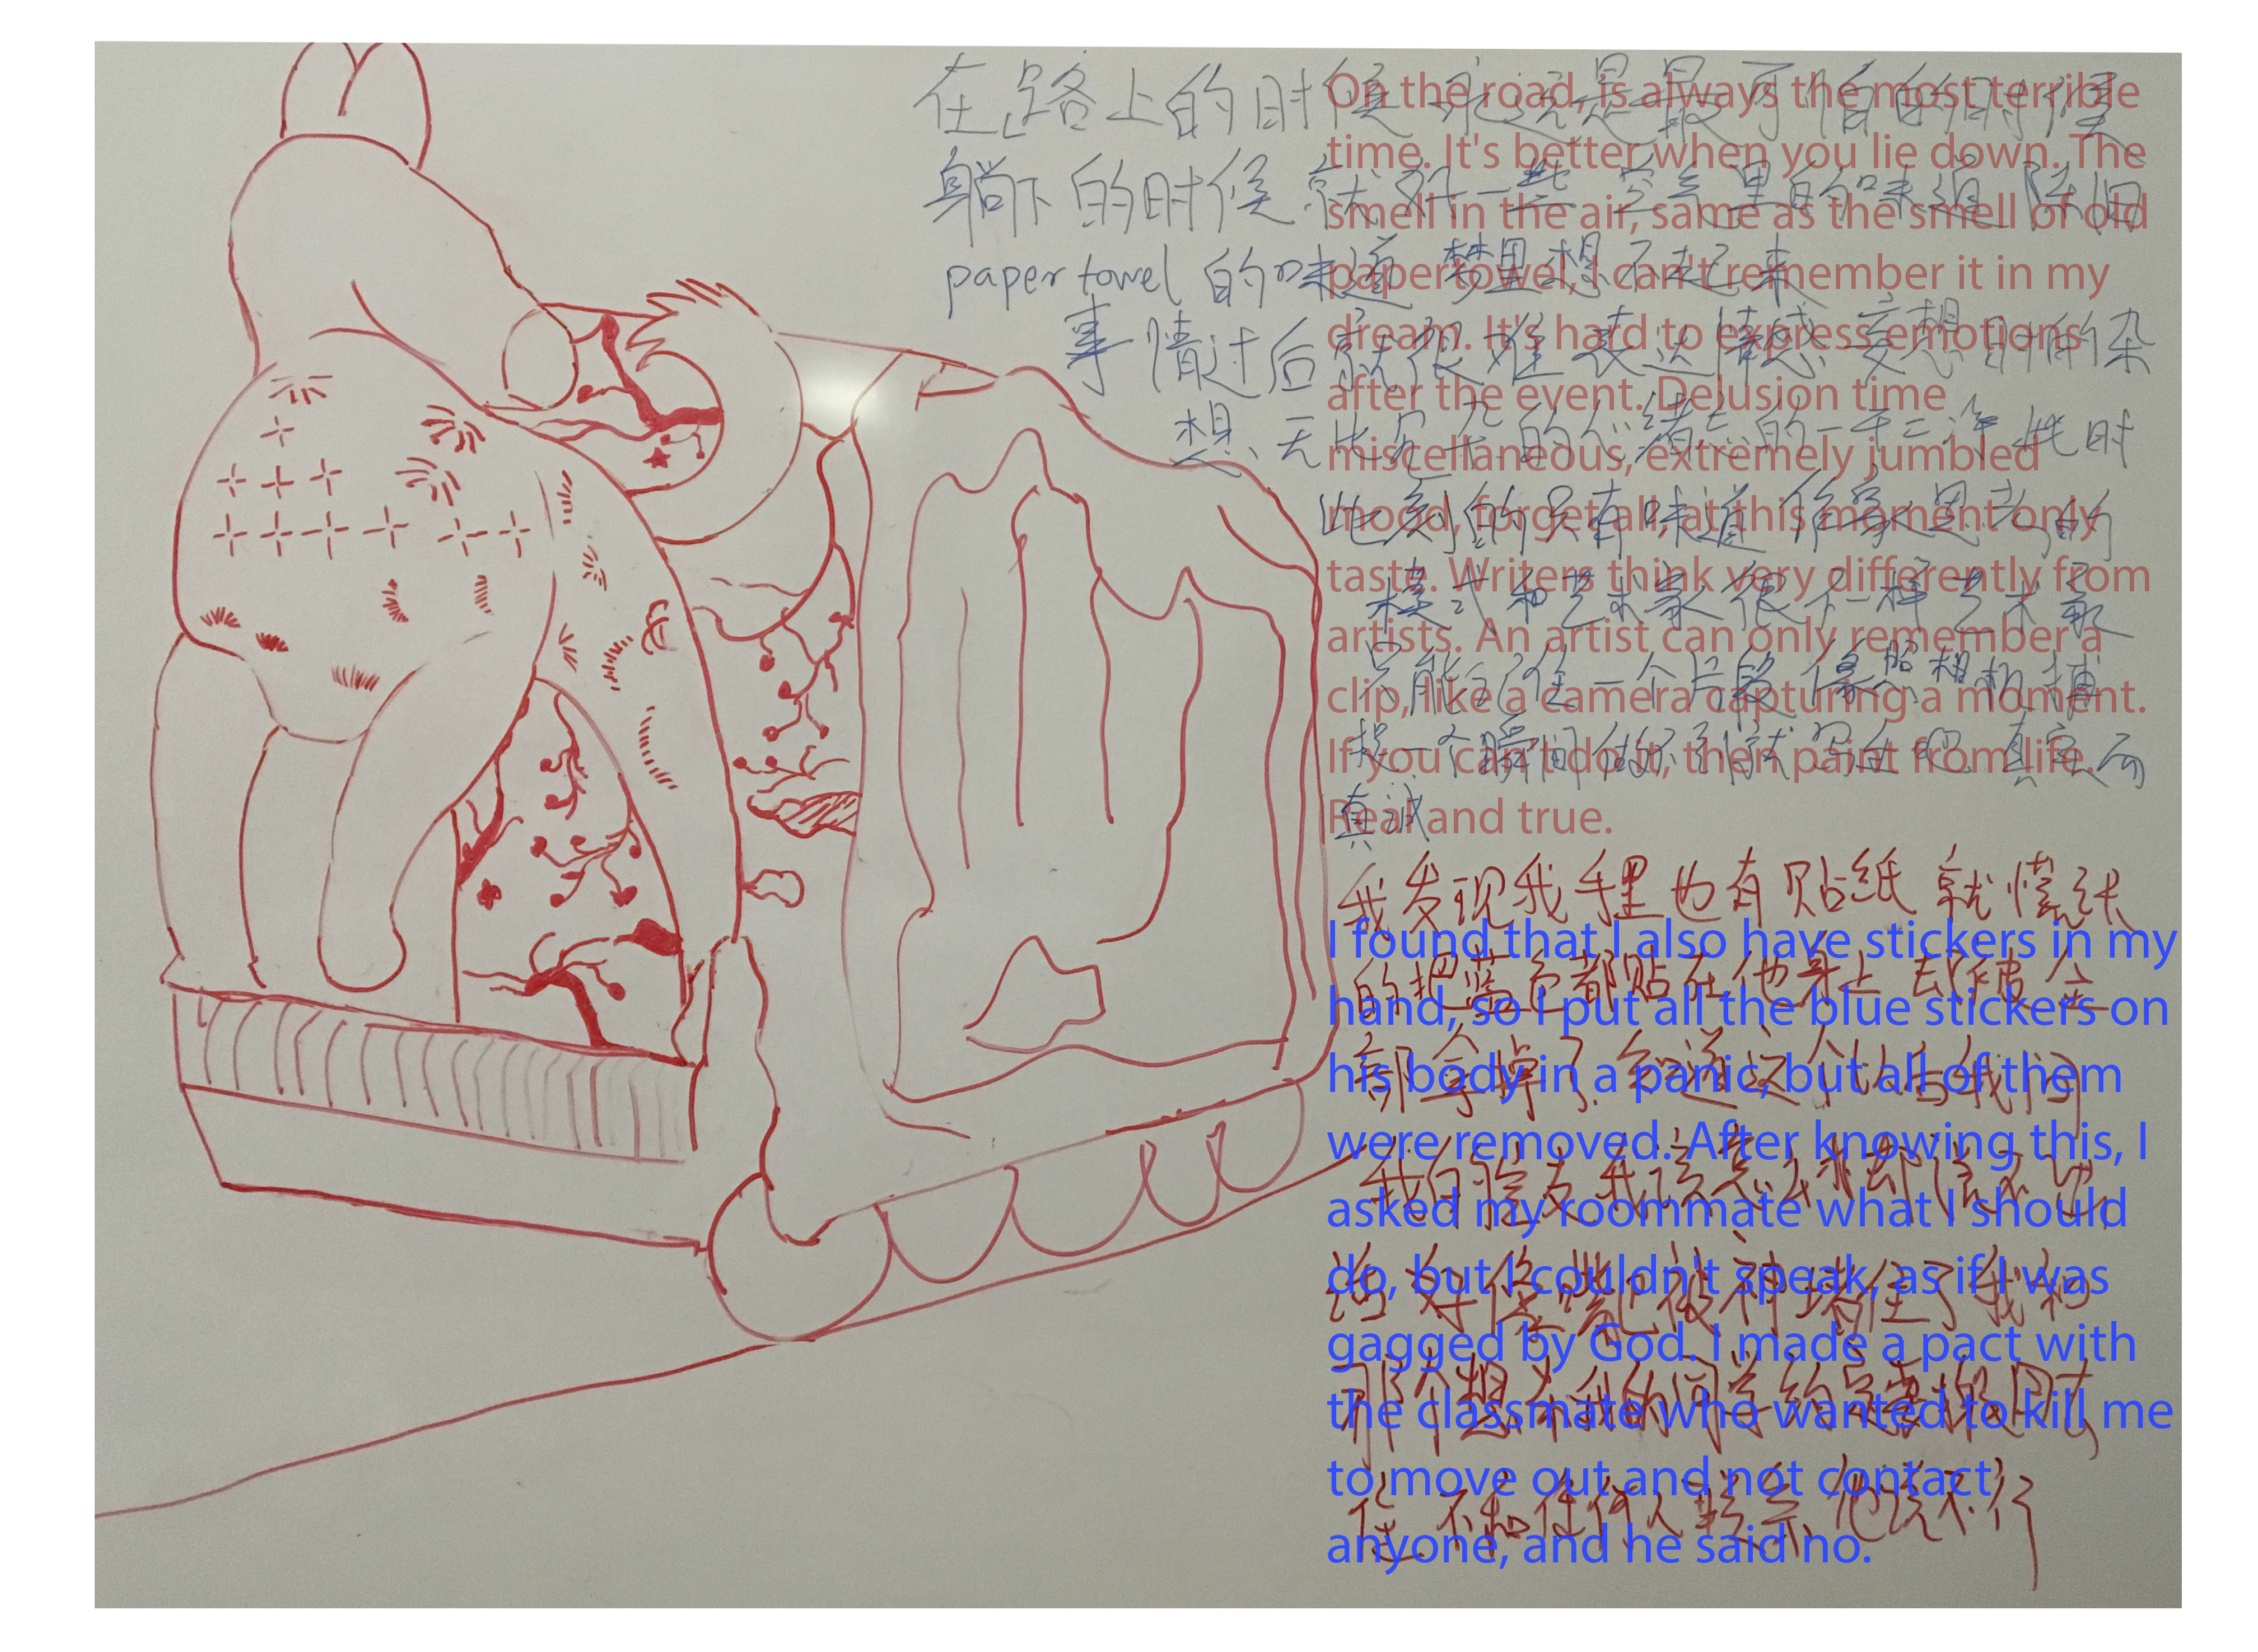 在路上的时候 永远是最可怕的时候
躺下的时候 就好一些 空气里的味道 陈旧
paper towel 的味道 梦里想不起来
事情过后就很难表达情感 妄想时的杂
想、无比冗杂的心绪忘的一干二净 此时
此刻的只有味道 作家思考的
模式和艺术家很不一样 艺术家
只能记住一个片段 像照相机捕
捉一个瞬间 做不到就写生吧 真实而
真诚
On the road, is always the most terrible
time. It's better when you lie down. The
smell in the air, same as the smell of old
papertowel, I can't remember it in my
dream. It's hard to express emotions
after the event. Delusion time
miscellaneous, extremely jumbled
mood, forget all, at this moment only
taste. Writers think very differently from
artists. An artist can only remember a
clip, like a camera capturing a moment.
If you can't do it, then paint from life.
Real and true.
我发现我手里也有贴纸 就慌张
的把蓝色都贴在他身上 却被全
部拿掉了 知道这个以后我问
我的室友我该怎么办却说不出
话 好像嘴巴被神堵住了 我和
那个想杀我的同学约定要搬出去
住 不和任何人联系 他说不行
I found that I also have stickers in my
hand, so I put all the blue stickers on
his body in a panic, but all of them
were removed. After knowing this, I
asked my roommate what I should
do, but I couldn't speak, as if I was
gagged by God. I made a pact with
the classmate who wanted to kill me
to move out and not contact
anyone, and he said no.